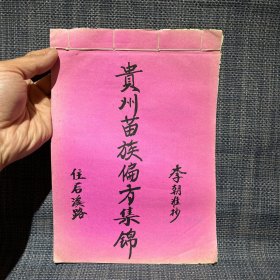 李朝雄抄
貴州苗族偏方集锦
住石溪路